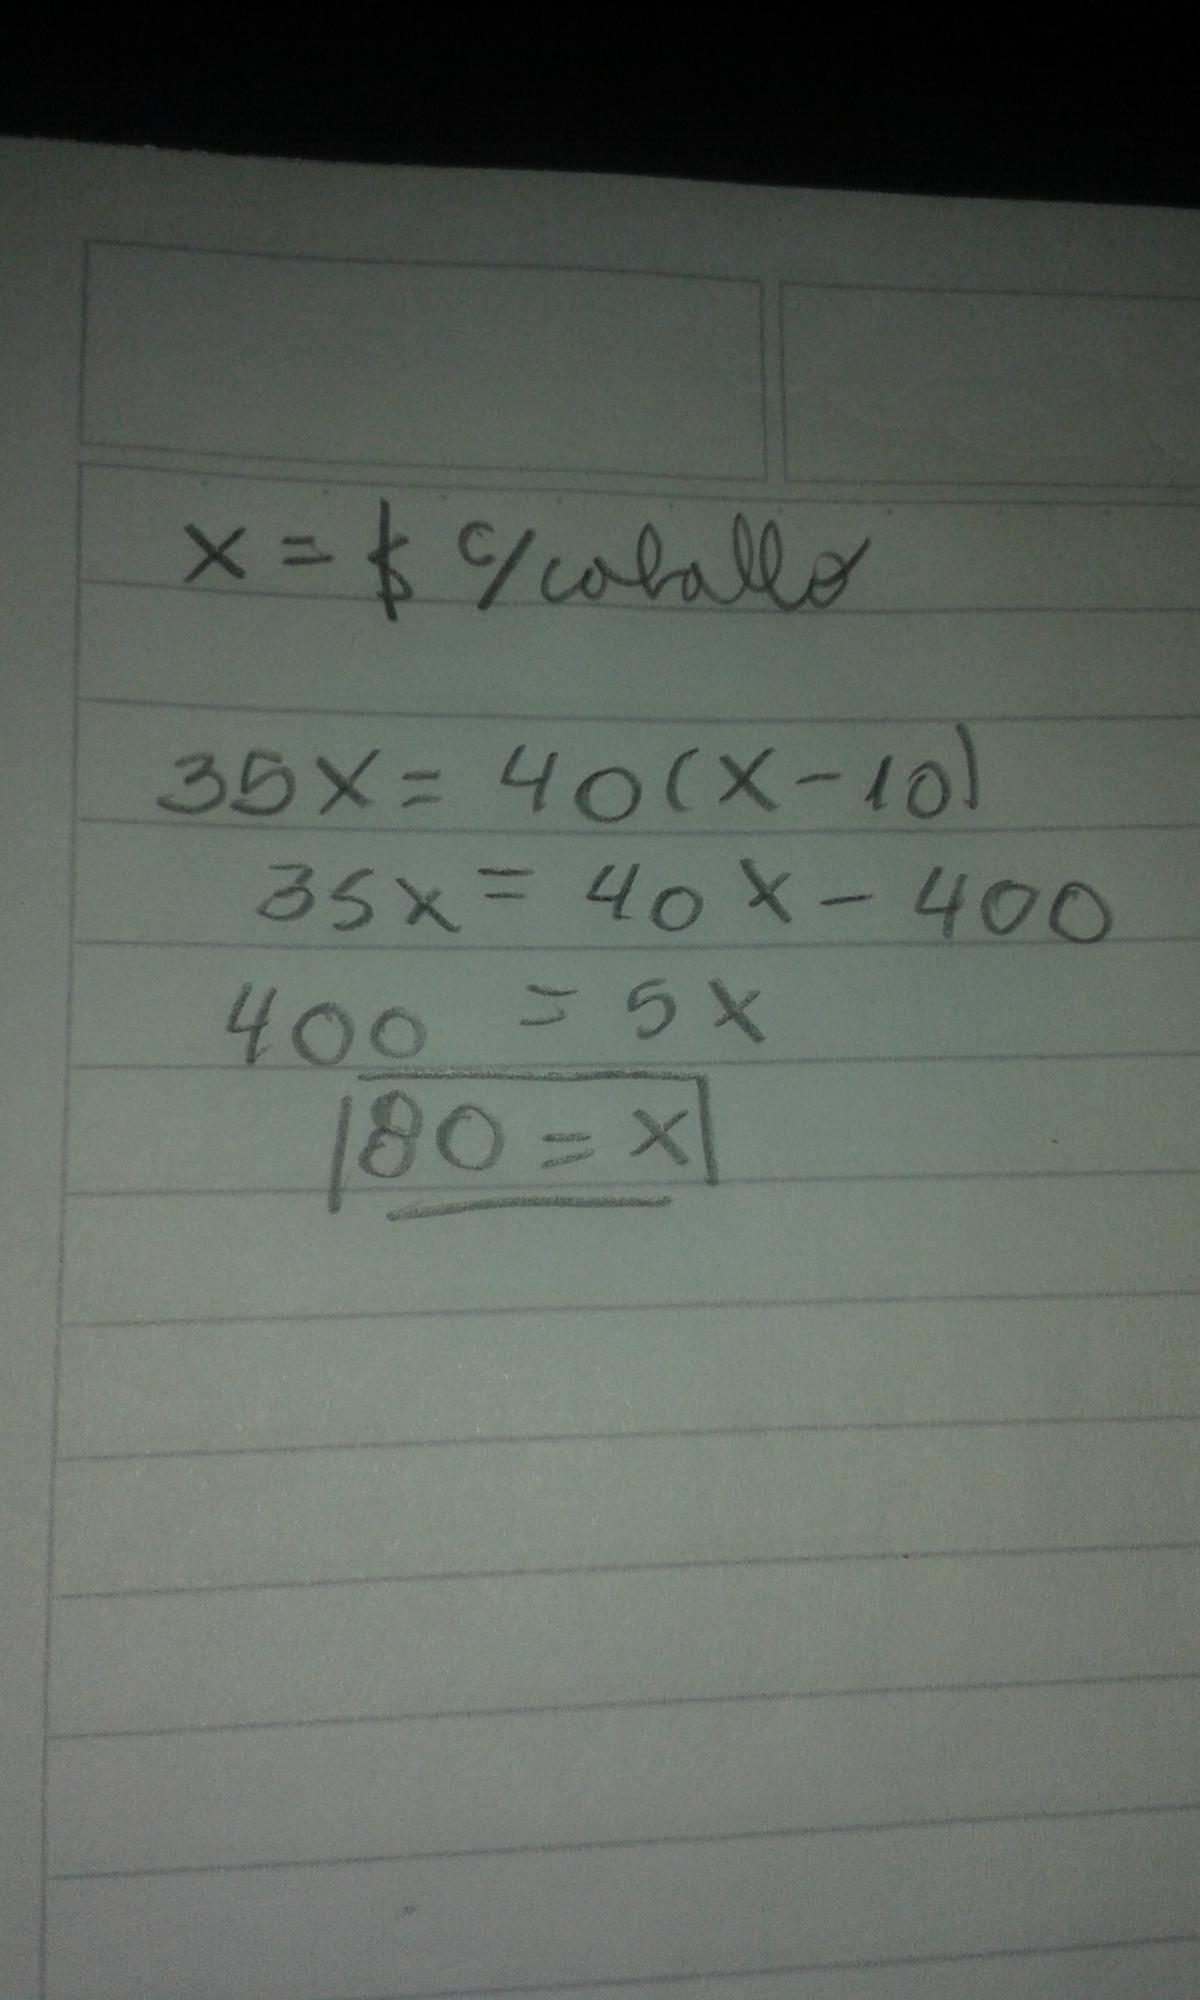 x = $ c/caballo
35x = 40(x-10)
35x = 40x - 400
400 = 5x
80 = x